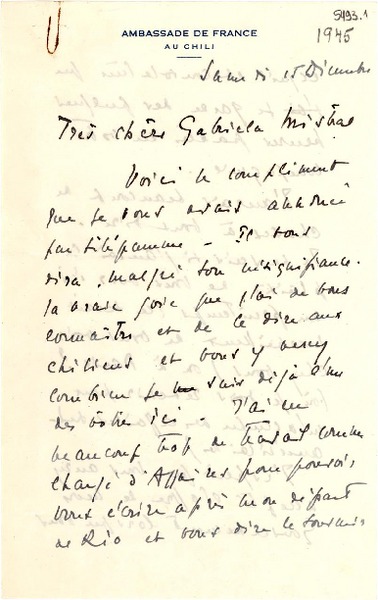 5493.1
1945
AMBASSADE DE FRANCE
AU CHILI
Samedi 15 Décembre
Très chère Gabriela Mistral
Voici le compliment
que je vous avais annoncé
par télégramme - Il vous
dira, malgré son insignifiance,
la vraie joie que j'ai de vous
connaître et de le dire aux
chiliens et vous y verrez
combien je suis déjà l'un
des vôtres ici - J'ai eu
beaucoup trop de travail comme
chargé d'Affaires pour pouvoir
vous écrire après mon départ
de Rio et vous dire le souvenir